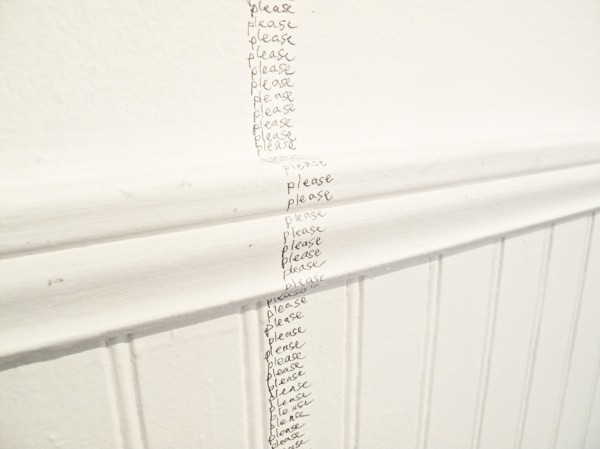 please
please
please
please
please
please
please
please
please
please
please
please
please
please
please
please
please
please
please
please
please
please
please
please
please
please
please
please
please
please
please
please
please
please